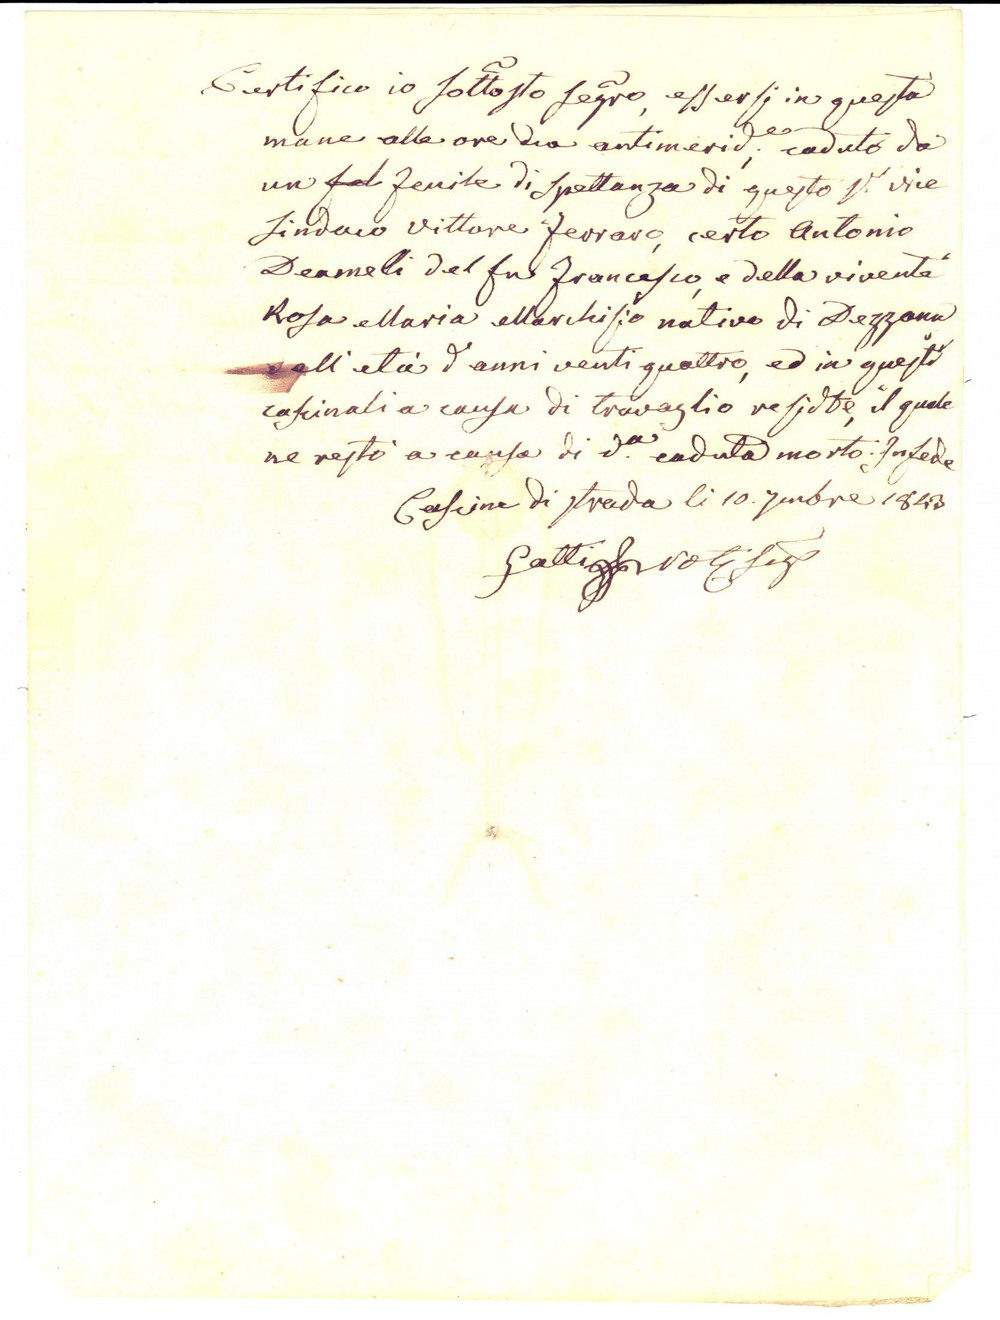 Certifico io sottosto segro, essersi in questa
mane alle ore antimerid.e caduto da
un fel fenile di spettanza di questo sr. vice
sindaco Vittore Ferraro, certo Antonio
Deameli del fu Francesco, e della vivente
Rosa Maria Marchisio nativo di Dezzana
dell' età d' anni venti quattro, ed in questi
cascinali a causa di travaglio residte, il quale
ne restò a causa di d.a caduta morto. In fede
Cascine di strada li 10. 7mbre 1843
Gatti segr